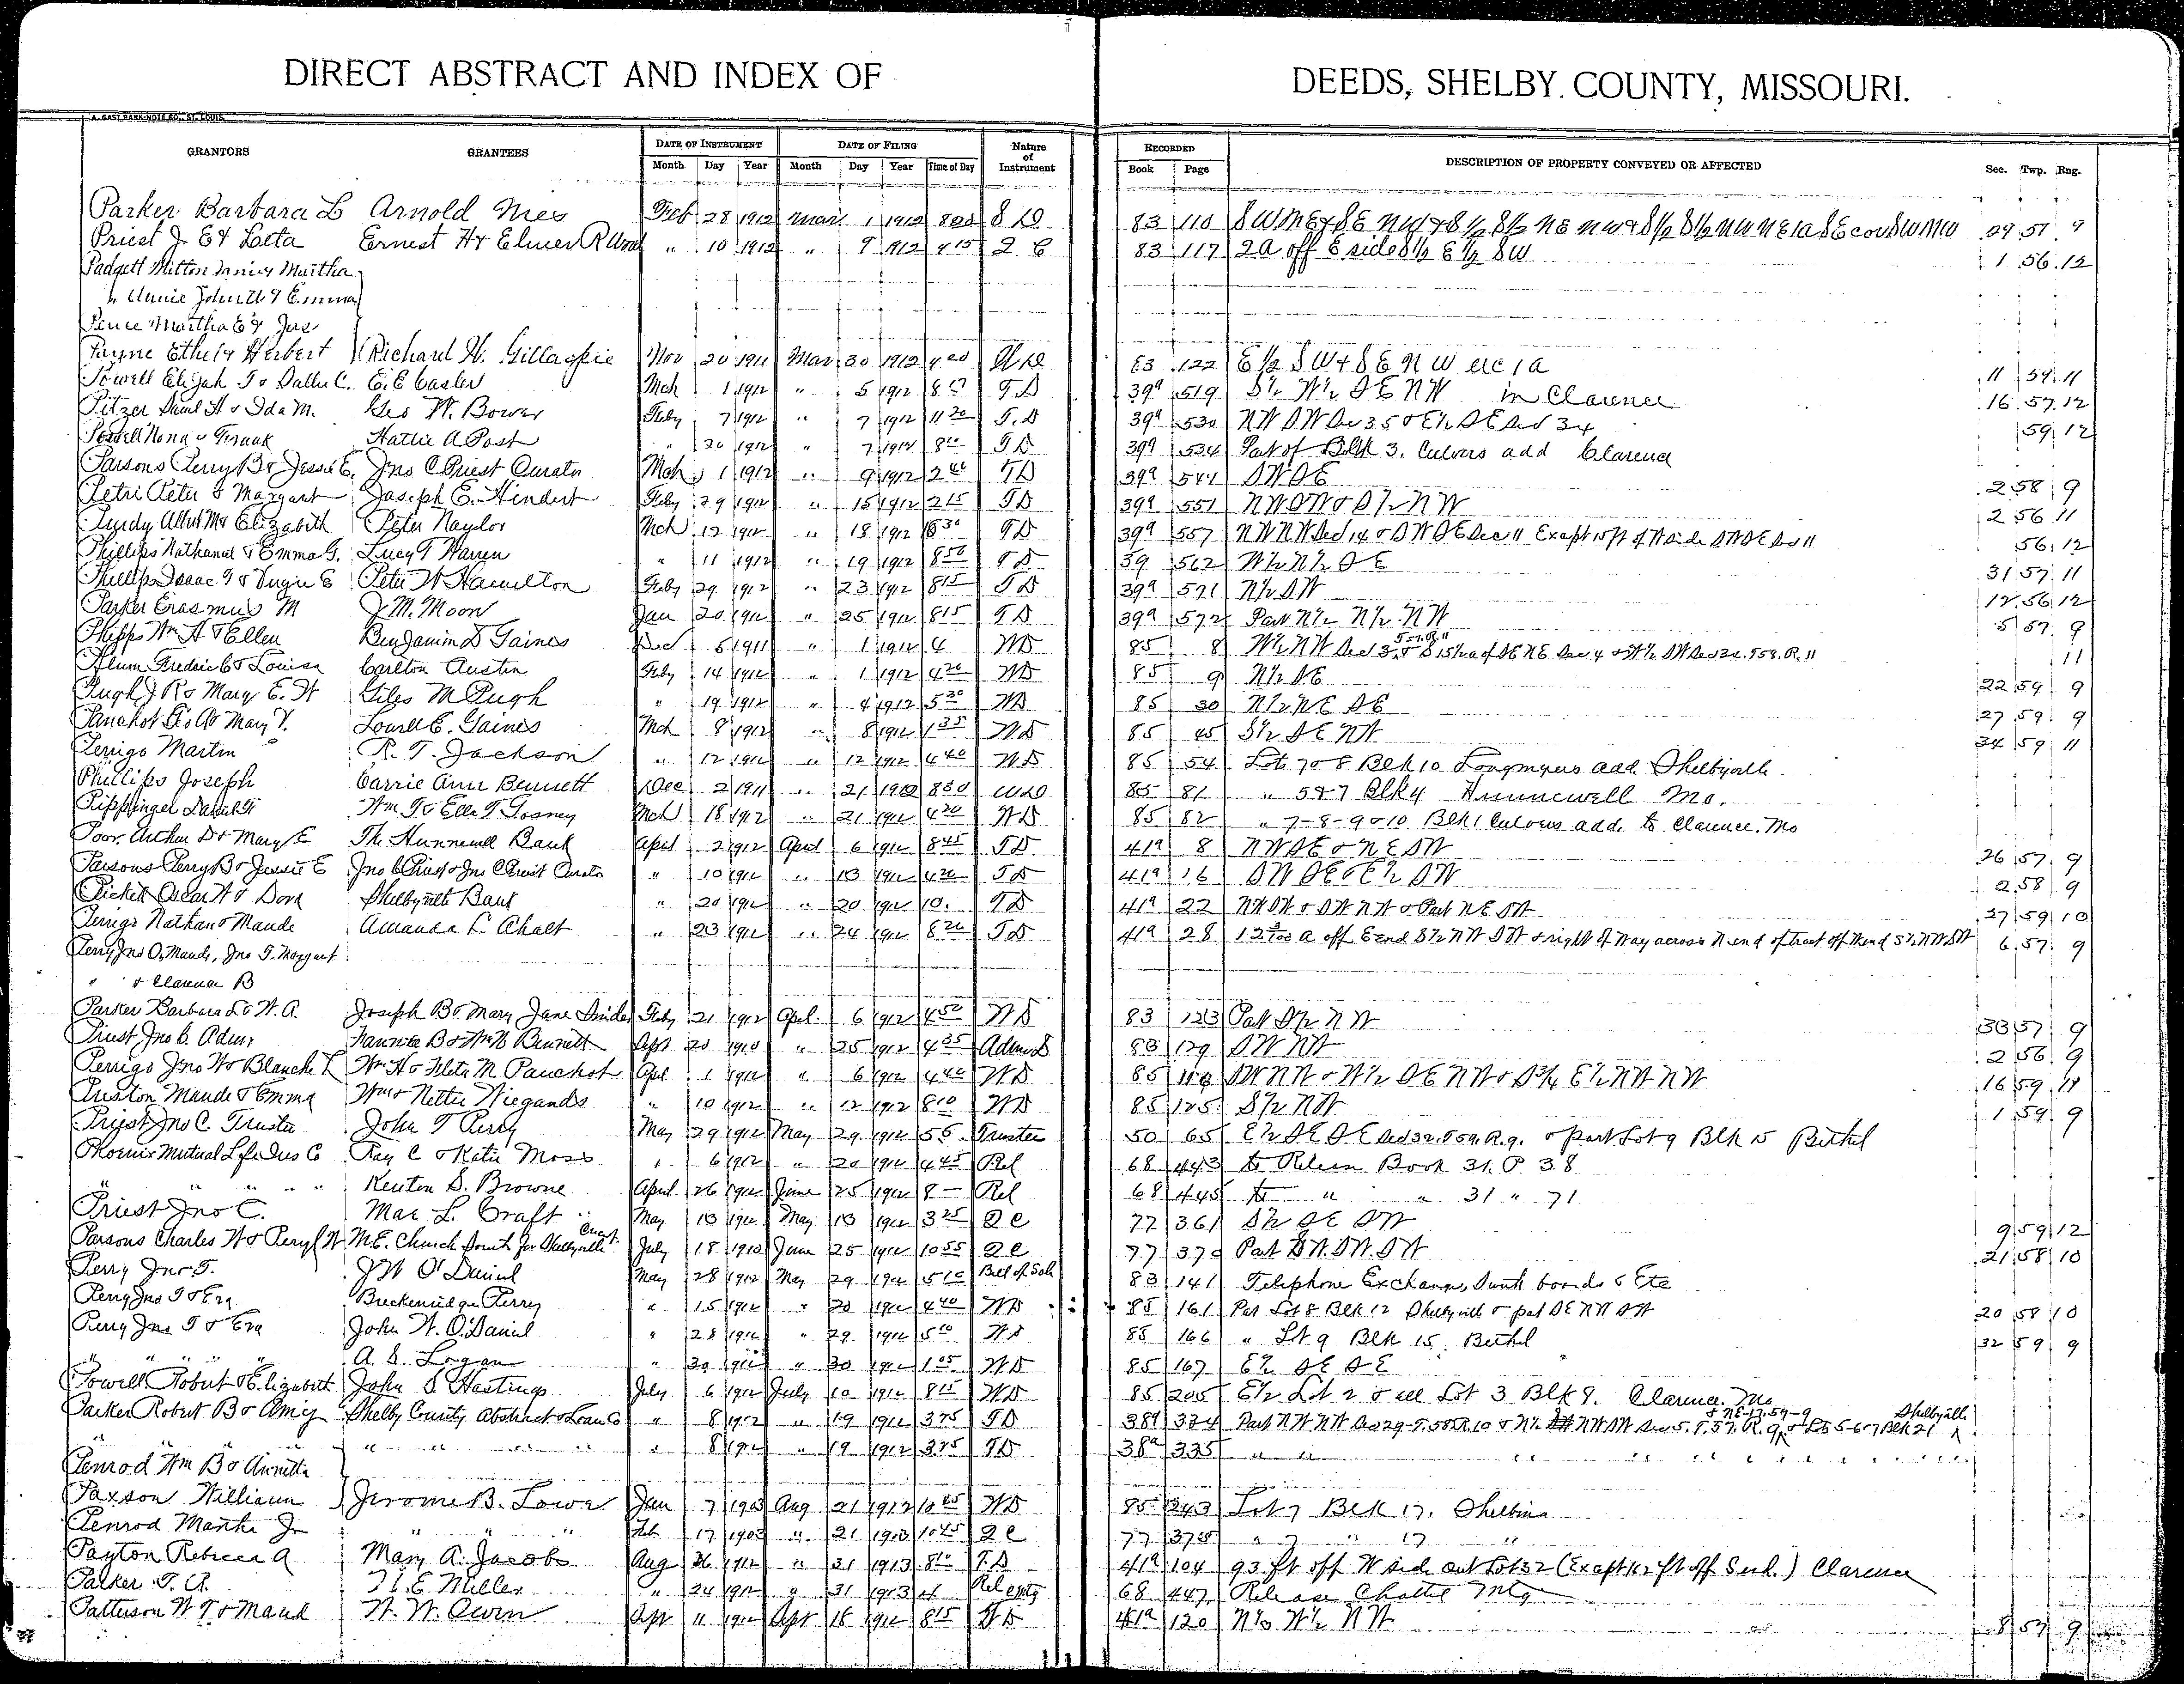 DIRECT ABSTRACT AND INDEX OF DEEDS, SHELBY COUNTY, MISSOURI.
A. GAST BANK-NOTE CO., ST. LOUIS
GRANTORS GRANTEES DATE OF INSTRUMENT DATE OF FILING Nature of Instrument RECORDED DESCRIPTION OF PROPERTY CONVEYED OR AFFECTED Sec. Twp. Rng.
Month Day Year Month Day Year Time of Day Book Page
Parker Barbara L Arnold Feb 28 1912 Mar 1 1912 820 83 110 29 57 9
Priest J. E & Leeta Ernest H & Elmer R " 10 1912 " 9 1912 415 2 C 83 117 2a off E side S½ E½ SW 1 56 12
Padgett Milton Martha
" Annie John & Emma
Pence Martha E & Jas
Payne Ethel & Herbert Richard H. Gillaspie Nov 20 1911 Mar 30 1912 400 WD 83 122 E½ SW & SE NW 11 57 11
Powell Elijah T & Dallie C. E. E Casler Mch 1 1912 " 5 1912 TD 39a 519 S½ W½ SE NW in Clarence 16 57 12
Pitzer Saml H & Ida M. Geo W. Bower Feby 7 1912 " 7 1912 1120 T.D 39a 530 NW SW Sec 35 & E½ SE Sec 34 59 12
Powell Nona & Frank Hattie A Post " 26 1912 " 7 1912 TD 39a 534 Part of Blk 3. Culvers add Clarence
Parsons Perry B & Jessie E. Jno C Priest Curator Mch 1 1912 " 9 1912 TD 39a 544 SW SE 2 58 9
Petri Peter & Margaret Joseph E. Hindert Feby 29 1912 " 15 1912 215 TD 39a 551 NW SW & S½ NW 2 56 11
Purdy Albert M & Elizabeth Peter Naylor Mch 12 1912 " 18 1912 TD 39a 557 NW NW Sec 14 & SW SE Sec 11 Except 10 ft of W side SW SE Sec 11 56 12
Phillips Nathaniel & Emma G. Lucy T Warren " 11 1912 " 19 1912 850 TD 39 562 W½ N½ SE 31 57 11
Phillips Isaac T & Virgie E Peter W Hamilton Feby 29 1912 " 23 1912 815 TD 39a 571 N½ SW 12 56 12
Parker Erasmus M J. M. Moon Jan 20 1912 " 25 1912 815 TD 39a 572 Part N½ N½ NW 5 57 9
Phipps Wm A & Ellen Benjamin D Gaines Dec 5 1911 " 1 1912 WD 85 8 W½ NW 11
Plum Fredric & Louisa Carlton Austin Feby 14 1912 " 1 1912 420 WD 85 9 N½ SE 22 59 9
Pugh J R & Mary E. H Giles M Pugh " 19 1912 " 4 1912 530 WD 85 30 N½ NE SE 27 59 9
Panchot Mary V. Lowell E. Gaines Mch 8 1912 " 8 1912 135 WD 85 45 S½ SE NW 34 59 11
Perrigo Martin R. T. Jackson " 12 1912 " 12 1912 440 WD 85 54 Lots 7 & 8 Blk 10 Longmyers add Shelbyville
Phillips Joseph Carrie Ann Bennett Dec 2 1911 " 21 1912 830 WD 85 81 " 5 & 7 Blk 4 Hunnewell Mo.
Pippinger Daniel Wm. T & Ella T Gosney Mch 18 1912 " 21 1912 420 WD 85 82 " 7-8-9 & 10 Blk 1 Culvers add. to Clarence. Mo
Poor Arthur D & Mary E The Hunnewell Bank April 2 1912 April 6 1912 845 TD 41a 8 NW SE & NE SW 26 57 9
Parsons Perry B & Jessie E Jno C Priest & Jno C Priest Curator " 10 1912 " 13 1912 420 TD 41a 16 SW SE & E½ SW 2 58 9
Pickett Oscar W & Dora Shelbyville Bank " 20 1912 " 20 1912 10. TD 41a 22 NW SW & SW NW & Part NE SW 27 59 10
Perrigo Nathan & Maude Amanda L Chalt " 23 1912 " 24 1912 820 TD 41a 28 a off E end S½ NW SW & right of Way across N end of tract off W end S½ NW SW 6 57 9
Perry Jno O, Maude, Jno T. Margart
" & Clarence B
Parker Barbara L & W. A. Joseph B & Mary Jane Snider Feby 21 1912 April 6 1912 450 WD 83 123 Part S½ NW 33 57 9
Priest Jno C. Admr Fannie B & Wm Bennett Apr 20 1910 " 25 1912 435 83 129 SW NW 2 56 9
Perrigo Jno W & Blanche L Wm H & Fleta M Panchot April 1 1912 " 6 1912 440 WD 85 110 SW NW & W½ SE NW & S¾ E½ NW NW 16 59 11
Preston Maude & Emma Wm & Nettie Wiegands " 10 1912 " 12 1912 810 WD 85 125 S½ NW 1 59 9
Priest Jno C. Trustee John T Perry May 29 1912 May 29 1912 Trustee 50 65 E½ SE SE Sec 32. T59. R.9. & part Lot 9 Blk 15 Bethel
Phoenix Mutual Life Ins Co Ray C & Katie Moss " 6 1912 " 20 1912 445 Rel 68 443 to Release Book 31. P. 38
" " " " Kenton S. Browne April 26 1912 June 25 1912 8— Rel 68 445 to " " 31 " 71
Priest Jno C. Mae L Craft May 13 1912 May 13 1912 325 QC 77 361 S½ SE SW 9 59 12
Parsons Charles W & Peryl M.E. Church South for Shelbyville July 18 1912 June 25 1912 1055 QC 77 370 Part SW. SW. SW 21 58 10
Perry Jno T. J W O'Daniel May 28 1912 May 29 1912 510 Bill of Sale 83 141 Telephone Exchange, Switch boards & Etc
Perry Jno T & Eva Breckenridge Perry " 15 1912 " 20 1912 440 WD 85 161 Part Lot 8 Blk 12 Shelbyville & part SE NW SW 20 58 10
Perry Jno T & Eva John W. O'Daniel " 28 1912 " 29 1912 510 WD 85 166 " Lot 9 Blk 15. Bethel 32 59 9
" " " " A. D. Logan " 30 1912 " 30 1912 105 WD 85 167 E½ SE SE
Powell Robert & Elizabeth John S Hastings July 6 1912 July 10 1912 815 WD 85 205 E½ Lot 2 & all Lot 3 Blk 9. Clarence. Mo
Parker Robert B & Amy Shelby County Abstract & Loan Co " 8 1912 " 19 1912 375 TD 38a 334 Part NW NW Sec 29-T.58.R.10 & N½ NW SW Sec 5. T.57. R. 9 & Lots 5-6-7 Blk 21 Shelbyville
" " " " " " 8 1912 " 19 1912 375 TD 38a 335 " "
Penrod Wm B & Annetta
Paxson William Jerome B. Lowe Jan 7 1903 Aug 21 1912 1045 WD 85 243 Lot 7 Blk 17. Shelbina
Penrod Martha J. " " " Feb 17 1903 " 21 1903 1045 QC 77 375 " 7 " 17 "
Payton Rebecca A Mary A. Jacobs Aug 26 1912 " 31 1913 810 T.D 41a 104 93 ft off W side out Lot 32 (Except ft off S end.) Clarence
Parker T. A. Miller " 24 1912 " 31 1913 Rel 68 447 Release Chattel Mtg
Patterson W T & Maud W. W. Owen Sept 11 1912 Sept 16 1912 815 41a 120 N½ W½ NW 8 57 9